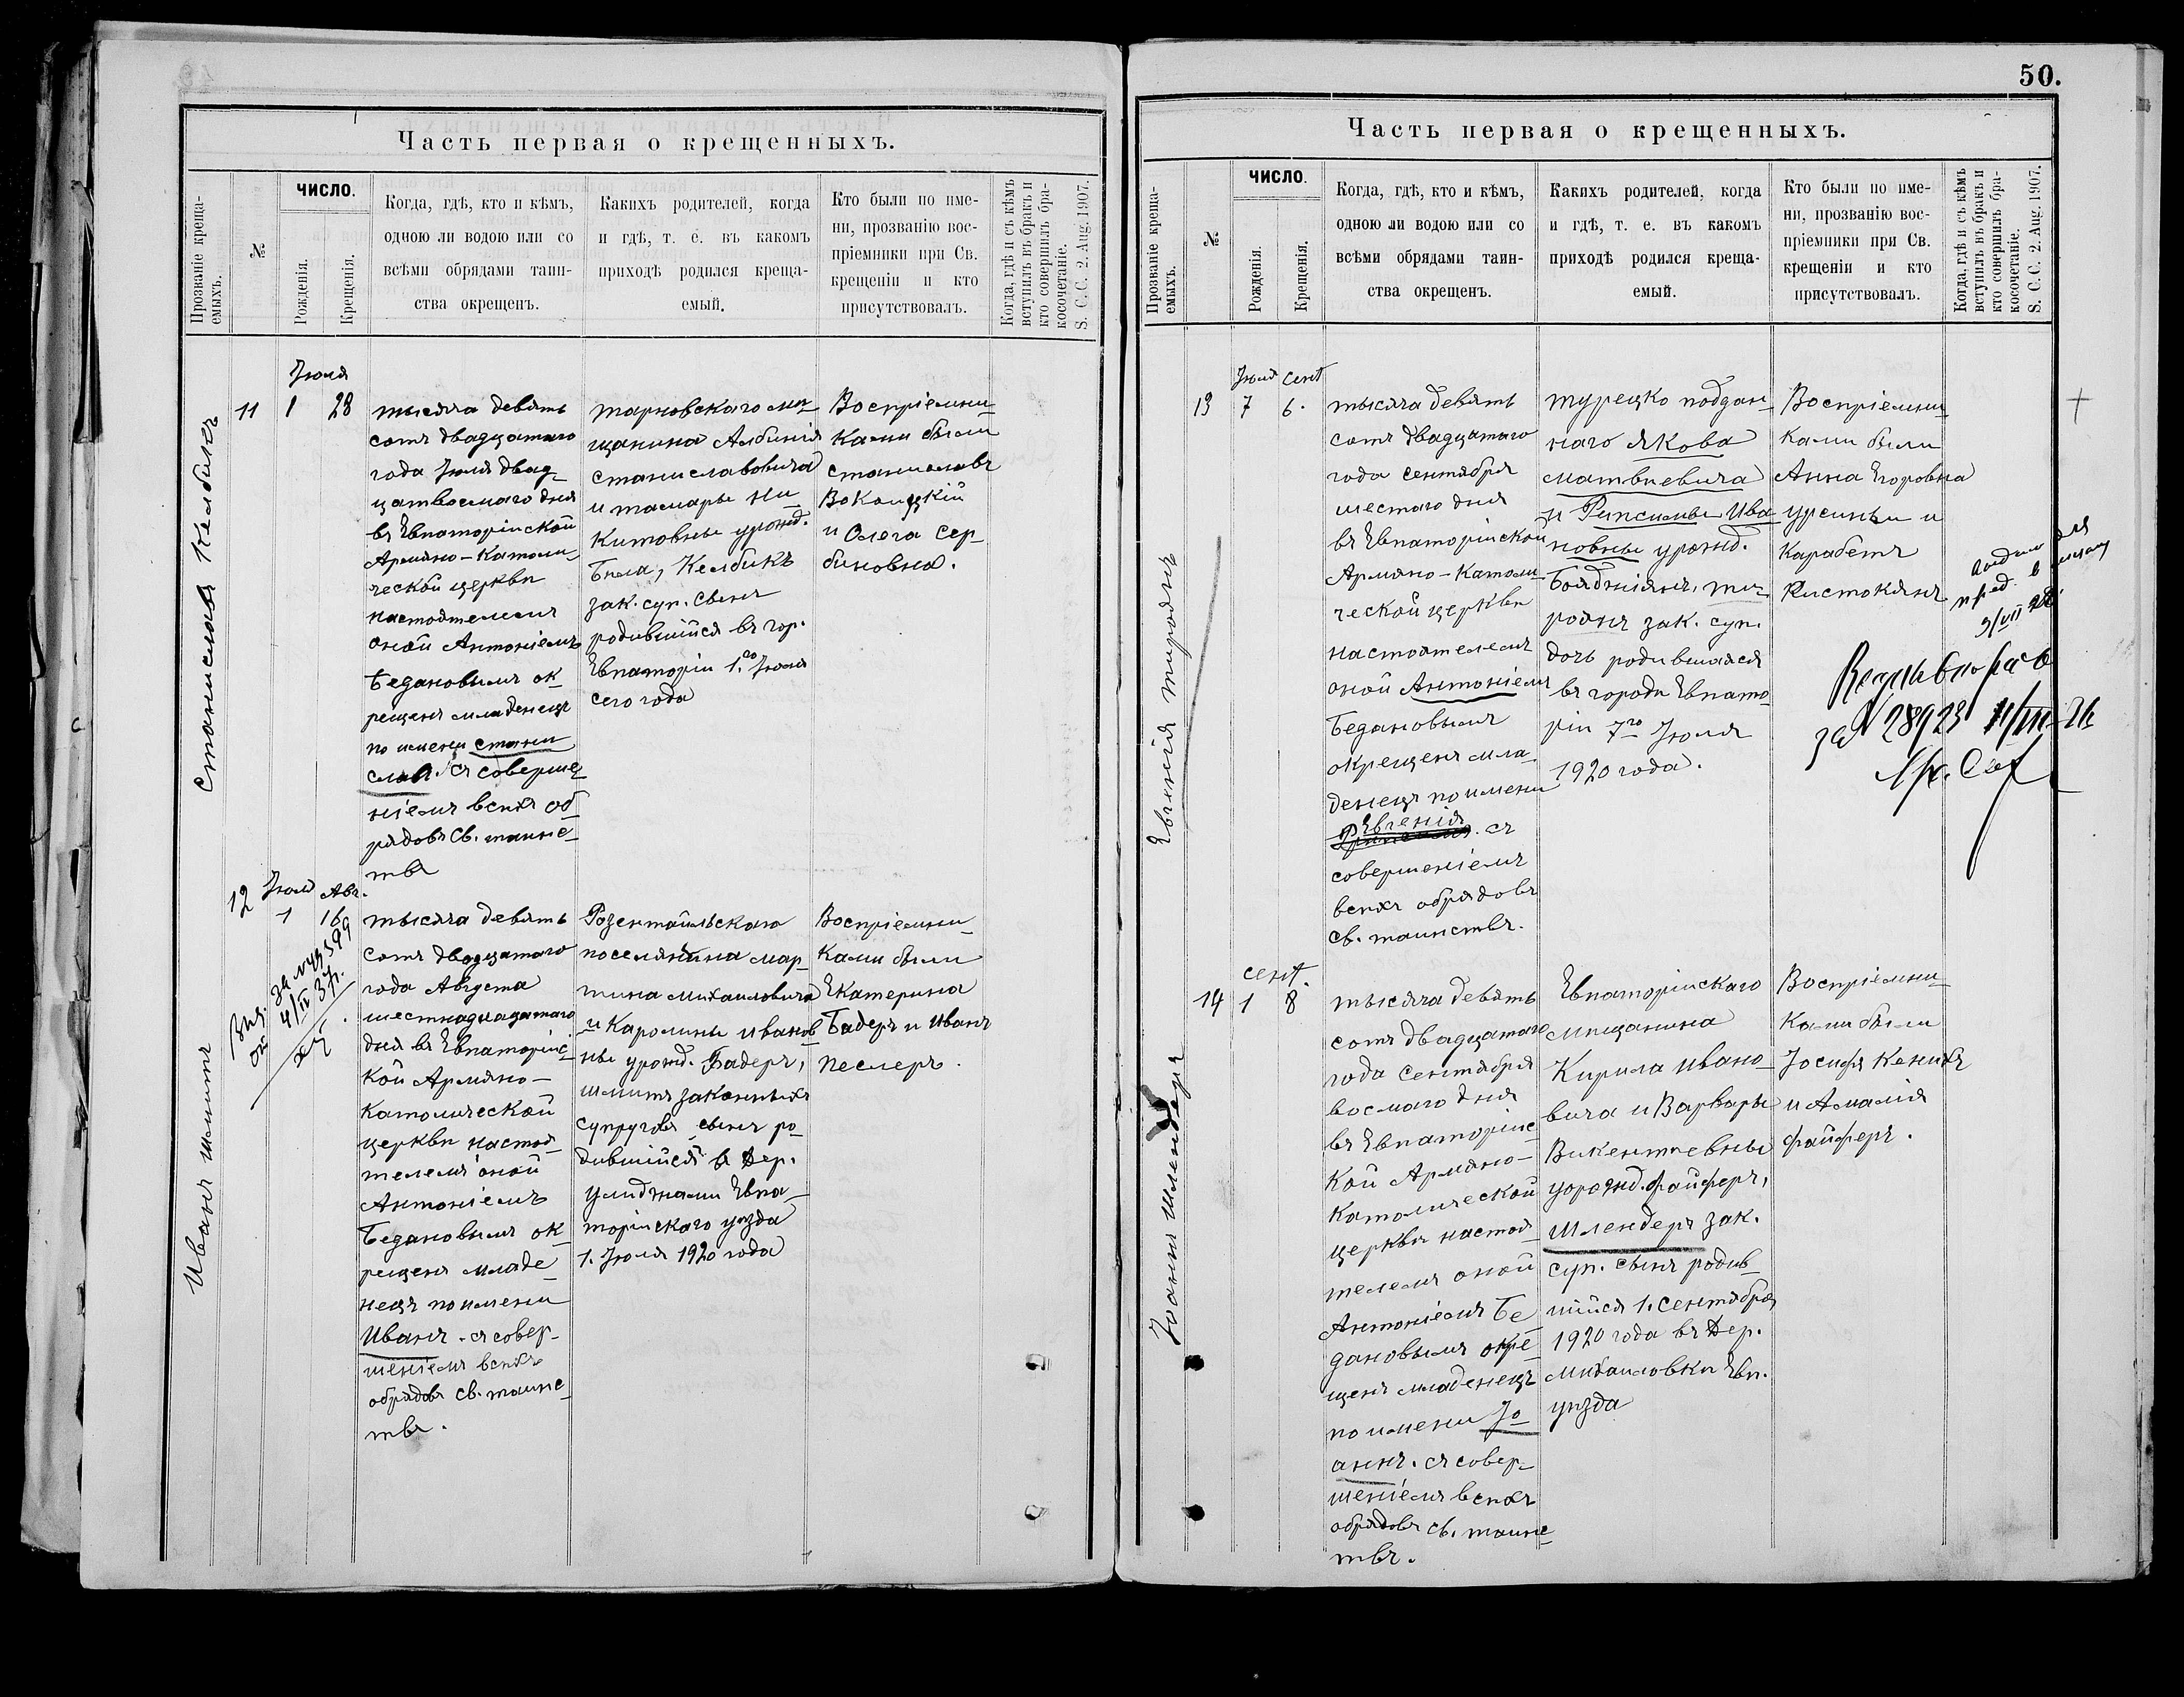 Часть первая о крещенныхъ.
Прозваніе креща-
емыхъ.
№
ЧИСЛО.
Рожденія.
Крещенія.
Когда, гдѣ, кто и кѣмъ,
одною ли водою или со
всѣми обрядами таин-
ства окрещенъ.
Какихъ родителей, когда
и гдѣ, т. е. въ какомъ
приходѣ родился креща-
емый.
Кто были по име-
ни, прозванію вос-
пріемники при Св.
крещеніи и кто
присутствовалъ.
Когда, гдѣ и съ кѣмъ
вступилъ въ бракъ и
кто совершилъ бра-
косочетаніе.
S. C. C. 2. Aug. 1907.
Станиславъ Кельбикъ
11
Іюля
1 28
тысяча девять
сотъ двадцатаго
года Іюля двад-
цатвосмаго дня
въ Евпаторійской
Армяно-Католи-
ческой церкви
настоятелемъ
оной Антоніемъ
Бедановымъ ок-
рещенъ младенецъ
по имени Стани
славъ съ соверше-
ніемъ всѣхъ об-
рядовъ св. таинс-
твъ
тарновскаго мѣ-
щанина Албинія
Станиславовича
и Тамары Ни-
китовны урожд.
Бѣла, Кельбикъ
зак. суп. сынъ
родившійся въ гор.
Евпаторіи 1.го Іюля
сего года
Воспріемни-
ками были
Станиславъ
и Олега Сер-
биновна.
Иванъ Шмитъ
12
Іюля Авг.
1 16
тысяча девять
сотъ двадцатаго
года Августа
шестнадцатаго
дня въ Евпаторійс-
кой Армяно-
Католической
церкви настоя-
телемъ оной
Антоніемъ
Бедановымъ ок-
рещенъ младе-
нецъ по имени
Иванъ. съ совер-
шеніемъ всѣхъ
обрядовъ св. таинс-
твъ.
Розентальскаго
поселянина Мар-
тина Михаиловича
и Каролины Иванов-
ны урожд. Бадеръ,
Шмитъ законныхъ
супруговъ сынъ ро-
дившійся въ дер.
Евпа-
торійскаго уѣзда
1. Іюля 1920 года
Воспріемни-
ками были
Екатерина
Бадеръ и Иванъ
Песлеръ.
50.
Часть первая о крещенныхъ.
Прозваніе креща-
емыхъ.
№
ЧИСЛО.
Рожденія.
Крещенія.
Когда, гдѣ, кто и кѣмъ,
одною ли водою или со
всѣми обрядами таин-
ства окрещенъ.
Какихъ родителей, когда
и гдѣ, т. е. въ какомъ
приходѣ родился креща-
емый.
Кто были по име-
ни, прозванію вос-
пріемники при Св.
крещеніи и кто
присутствовалъ.
Когда, гдѣ и съ кѣмъ
вступилъ въ бракъ и
кто совершилъ бра-
косочетаніе.
S. C. C. 2. Aug. 1907.
Евгенія Тироянъ
13
Іюля Сент
7 6.
тысяча девять
сотъ двадцатаго
года сентября
шестаго дня
въ Евпаторійской
Армяно-Католи-
ческой церкви
настоятелемъ
оной Антоніемъ
Бедановымъ
окрещенъ мла-
денецъ по имени
Евгенія
съ
совершеніемъ
всѣхъ обрядовъ
св. таинствъ.
турецко поддан-
наго Якова
Матвѣевича
и Рипсимы Ива-
новны урожд.
Бояджіянъ, Ти-
роянъ зак. суп.
дочь родившаяся
въ городѣ Евпато-
ріи 7го Іюля
1920 года.
Воспріемни-
ками были
Анна Егоровна
и
Карабетъ
Кистокянъ
за № 28923
Іоаннъ Шлендеръ
14
сент.
1 8
тысяча девять
сотъ двадцатаго
года Сентября
восмаго дня
въ Евпаторійс-
кой Армяно-
Католической
церкви настоя-
телемъ оной
Антоніемъ Бе-
дановымъ окре-
щенъ младенецъ
по имени Іо-
аннъ. съ совер-
шеніемъ всѣхъ
обрядовъ св. таинс-
твъ.
Евпаторійскаго
мѣщанина
Кирила Ивано-
вича и Варвары
Викентьевны
урожд. Файферъ,
Шлендеръ зак.
суп. сынъ родив-
шійся 1. Сентября
1920 года въ дер.
Михаиловки Евп.
уѣзда
Воспріемни-
ками были
Іосифъ Кенихъ
и Амалія
Файферъ.